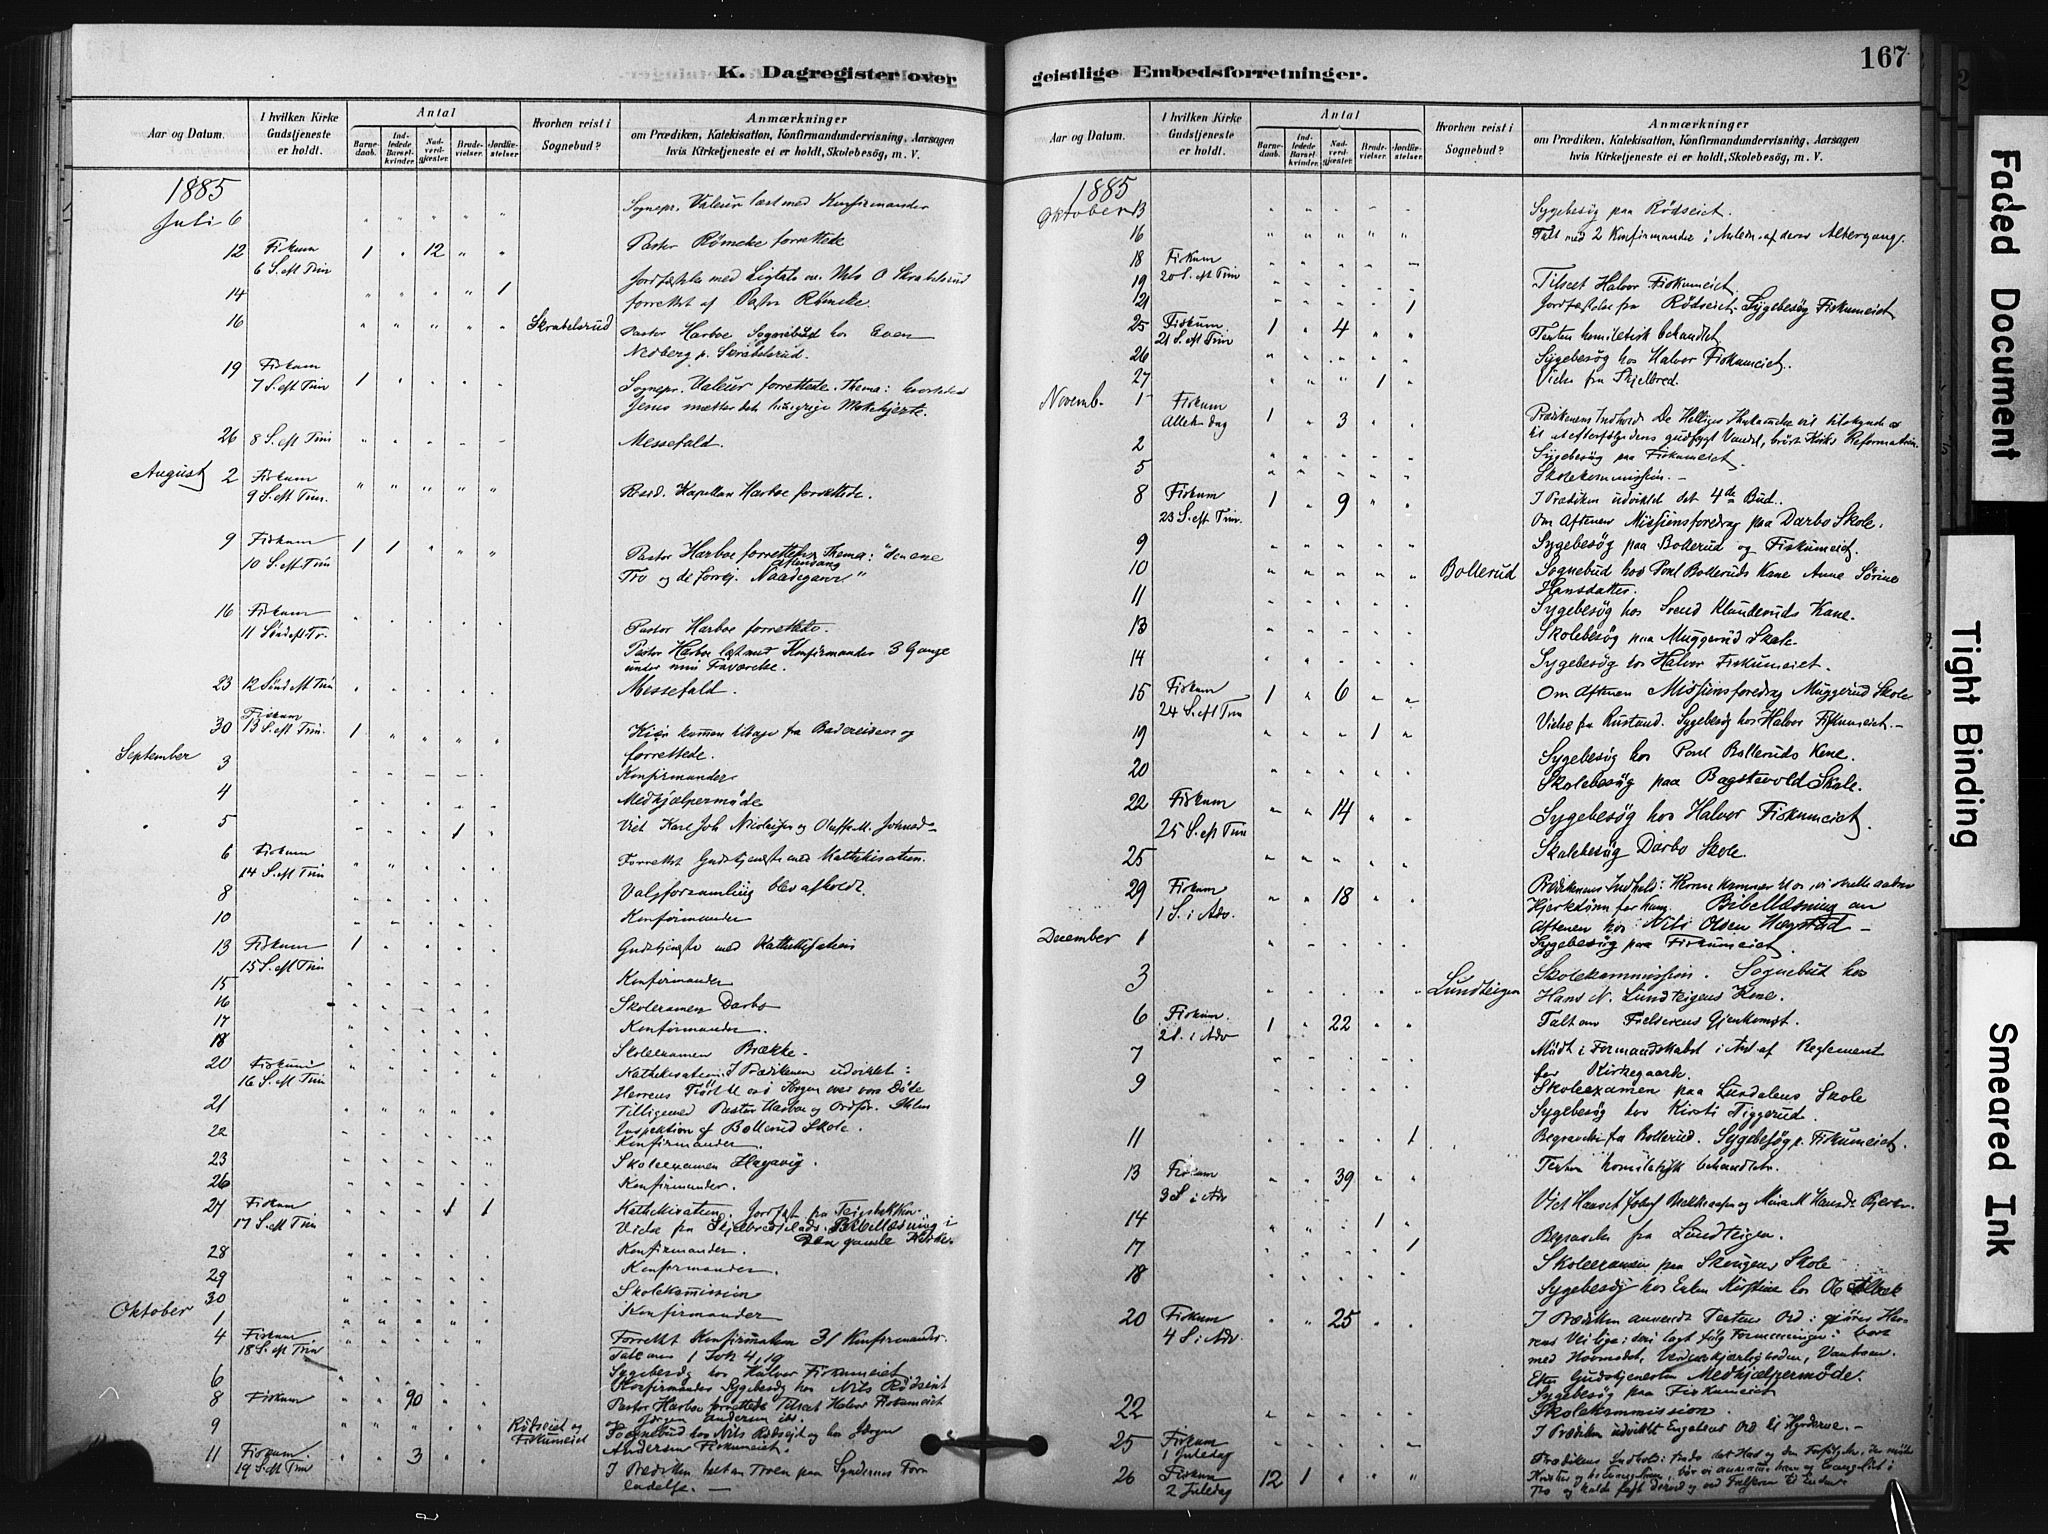 167
K. Dagregister over geistlige Embedsforretninger.
Aar og Datum.
I hvilken Kirke Gudstjeneste er holdt.
Antal
Barnedaab.
Indledede Barselkvinder
Nadverdgjæster.
Brudevielser.
Jordfæstelser
Hvorhen reist i Sognebud?
Anmærkninger
om Prædiken, Katekisation, Konfirmandundervisning, Aarsagen
hvis Kirketjeneste ei er holdt, Skolebesøg, m. V.
1885
Juli 6 Sognepr. Valeur læst med Konfirmander
12 Fiskum 1 12 Pastor Rømcke forrettede
6 S. eft Trin
14 1 Jordfæstelse med Ligtale ov. Nils O Skrabelsrud
forrettet af Pastor Rømcke.
16 Skrabelsrud Pastor Harboe Sognebud hos Even
Nedberg p. Skrabelsrud.
19 Fiskum 1 Sognepr. Valeur forrettede. Thema:
7 S. eft Trin Jesus mætter det hungrige
26 8 S. eft Trin Messefald.
August 2 Fiskum Resd. Kapellan Harboe forrettede.
9 S. eft Trin.
9 Fiskum 1 1 Pastor Harboe forrettede Thema: "den ene
10 S. eft Trin Tro og de Naadegaver"
16 Fiskum Pastor Harboe forrettede.
11 Sønd eft Tr. Pastor Harboe læst med Konfirmander 3 Gange
under min Fraværelse.
23 12 Sønd eft Trin Messefald.
30 Fiskum 1 kommen tilbage fra Badereisen og
13 S. eft Trin. forrettede.
September 3 Konfirmander
4 Medhjælpermøde
5 1 Viet Karl Joh. Nicolaisen og
6 Fiskum Forrettet Gudstjeneste med Kathekisation.
14 S. eft Trin
8 Valgforsamling blev afholdt.
10 Konfirmander
13 Fiskum 1 Gudstjeneste med Kathekisation
15 S. eft Trin
15 Konfirmander
16 Skoleexamen Darbo
17 Konfirmander.
18 Skoleexamen Brække.
20 Fiskum Kathekisation. I Prædikenen udviklet:
16 S. eft Trin Herrens Trøst til os i Sorgen over vore Døde
21 Tilligemed Pastor Harboe og Ordfør.
Inspektion af Bollerud Skole.
22 Konfirmander.
23 Skoleexamen Hagavig.
26 Konfirmander.
27 Fiskum 1 1 Kathekisation. Jordfæst. fra Teigsbakken.
17 S. eft Trin Vielse fra Bibellæsning i
Den gamle Kirke.
28 Konfirmander.
29 Konfirmander.
30 Skolekomission
Oktober 1 Konfirmander
4 Fiskum Forrettet Konfirmation 31 Konfirmander.
18 S. eft Trin Tale over 1 Joh 4,19
6 Sygebesøg hos Halvor Fiskumeiet
Konfirmander Sygebesøg hos Nils Rødseiet
8 Fiskum 90 Pastor Harboe forrettede Tilseet Halvor Fiskumeiet
og Jørgen Andersen ibd.
9 Rødseiet og Fiskumeiet Sognebud hos Nils Rødseiet og hos Jørgen
Andersen Fiskumeiet.
11 Fiskum 3 I Prædiken talt om Troen paa Syndernes Forladelse.
19 S. eft Trin
Aar og Datum.
I hvilken Kirke Gudstjeneste er holdt.
Antal
Barnedaab.
Indledede Barselkvinder
Nadverdgjæster.
Brudevielser.
Jordfæstelser
Hvorhen reist i Sognebud?
Anmærkninger
om Prædiken, Katekisation, Konfirmandundervisning, Aarsagen
hvis Kirketjeneste ei er holdt, Skolebesøg, m. V.
1885
Oktober 13 Sygebesøg paa Rødseiet.
16 Talt med 2 Konfirmander i Anledn. af deres Altergang.
18 Fiskum
20 S. eft Trin
19 Tilseet Halvor Fiskumeiet.
21 1 Jordfæstelse fra Rødseiet. Sygebesøg Fiskumeiet
25 Fiskum. 1 4 Texten homiletisk behandlet.
21 S. eft Trin
26 Sygebesøg hos Halvor Fiskumeiet.
27 1 Vielse fra Skjelbred.
Novemb. 1 Fiskum 1 3 Prædikenens Indhold: De Helliges Ihukommelse
Alleh. dag Reformation.
2 Sygebesøg paa Fiskumeiet.
5 Skolekommission.
8 Fiskum 1 9 I Prædiken udviklet det 4de Bud.
23 S. eft Trin. Om Aftenen Missionsforedrag paa Darbo Skole.
9 Sygebesøg paa Bollerud og Fiskumeiet.
10 Bollerud Sognebud hos Poul Bolleruds Kone Anne Sørine
Hansdatter.
11 Sygebesøg hos Svend Klunderuds Kone.
13 Skolebesøg paa Muggerud Skole.
14 Sygebesøg hos Halvor Fiskumeiet.
15 Fiskum 1 6 Om Aftenen Missionsforedrag Muggerud Skole
24 S. eft Trin
19 1 Vielse fra Rustand. Sygebesøg hos Halvor Fiskumeiet.
20 Sygebesøg hos Poul Bolleruds Kone.
Skolebesøg paa Bagstevold Skole.
22 Fiskum 14 Sygebesøg hos Halvor Fiskumeiet.
25 S. eft Trin
25 Skolebesøg Darbo Skole.
29 Fiskum 18 Prædikenens Indhold: Herren kommer til os, vi skulle aabne
1 S. i Adv. Hjertedøren for ham. Bibellæsning om
Aftenen hos Nils Olsen Hægstad
December 1 Sygebesøg paa Fiskumeiet.
3 Lundteigen Skolekommission. Sognebud hos
Hans N. Lundteigens Kone.
6 Fiskum. 1 22 Talt om Frelserens Gjenkomst.
2 S. i Adv
7 Mødt i Formandskabet i Anl. af Reglement
for Kirkegaarde.
9 Skoleexamen paa Lurdalens Skole
Sygebesøg hos Kirsti Tiggerud.
11 1 Begravelse fra Bollerud. Sygebesøg p. Fiskumeiet.
13 Fiskum 39 Texten homiletisk behandlet.
3 S i Adv
14 1 Viet
17 1 Begravelse fra Lundteigen.
18 Skoleexamen paa Skougens Skole
Sygebesøg hos Enken
20 Fiskum 25 I Prædiken anvendt Textens Ord: gjører Herrens
4 S i Adv. Vei lige: deri lagt følg. Formaninger: bort
med Hovmodet, Verdenskjærligheden, Vantroen.
Efter Gudstjenesten Medhjælpermøde.
Sygebesøg paa Fiskumeiet
22 Skolekommission.
25 Fiskum I Prædiken udviklet Engelens Ord til Hyrderne.
1 Juledag
26 Fiskum 12 1 Prædikens Indhold:
2 Juledag
Faded Document
Tight Binding
Smeared Ink